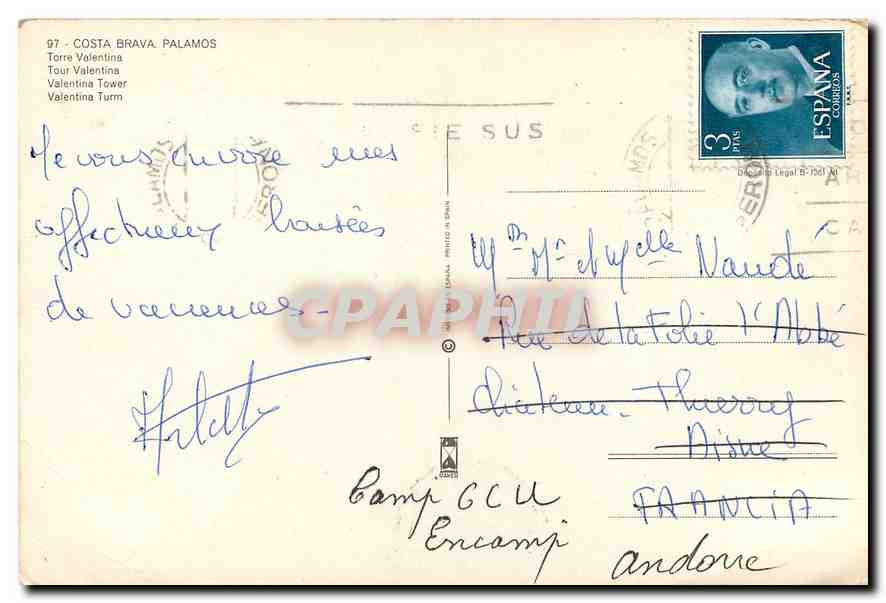 97 - COSTA BRAVA. PALAMOS
Torre Valentina
Tour Valentina
Valentina Tower
Valentina Turm
Je vous envoie mes
affectueux baisers
de vacances -
ESPAÑA
CORREOS
F.N.M.T.
3
PTAS
Depósito Legal B-1361 XI
PALAMOS
GERONA
SUS
PRINTED IN SPAIN
CPAPHIL
Mme Mr et Melle Naudé
Rue de la Folie l'Abbé
Château-Thierry
Aisne
FRANCIA
Camp GCU
Encamp
andorre